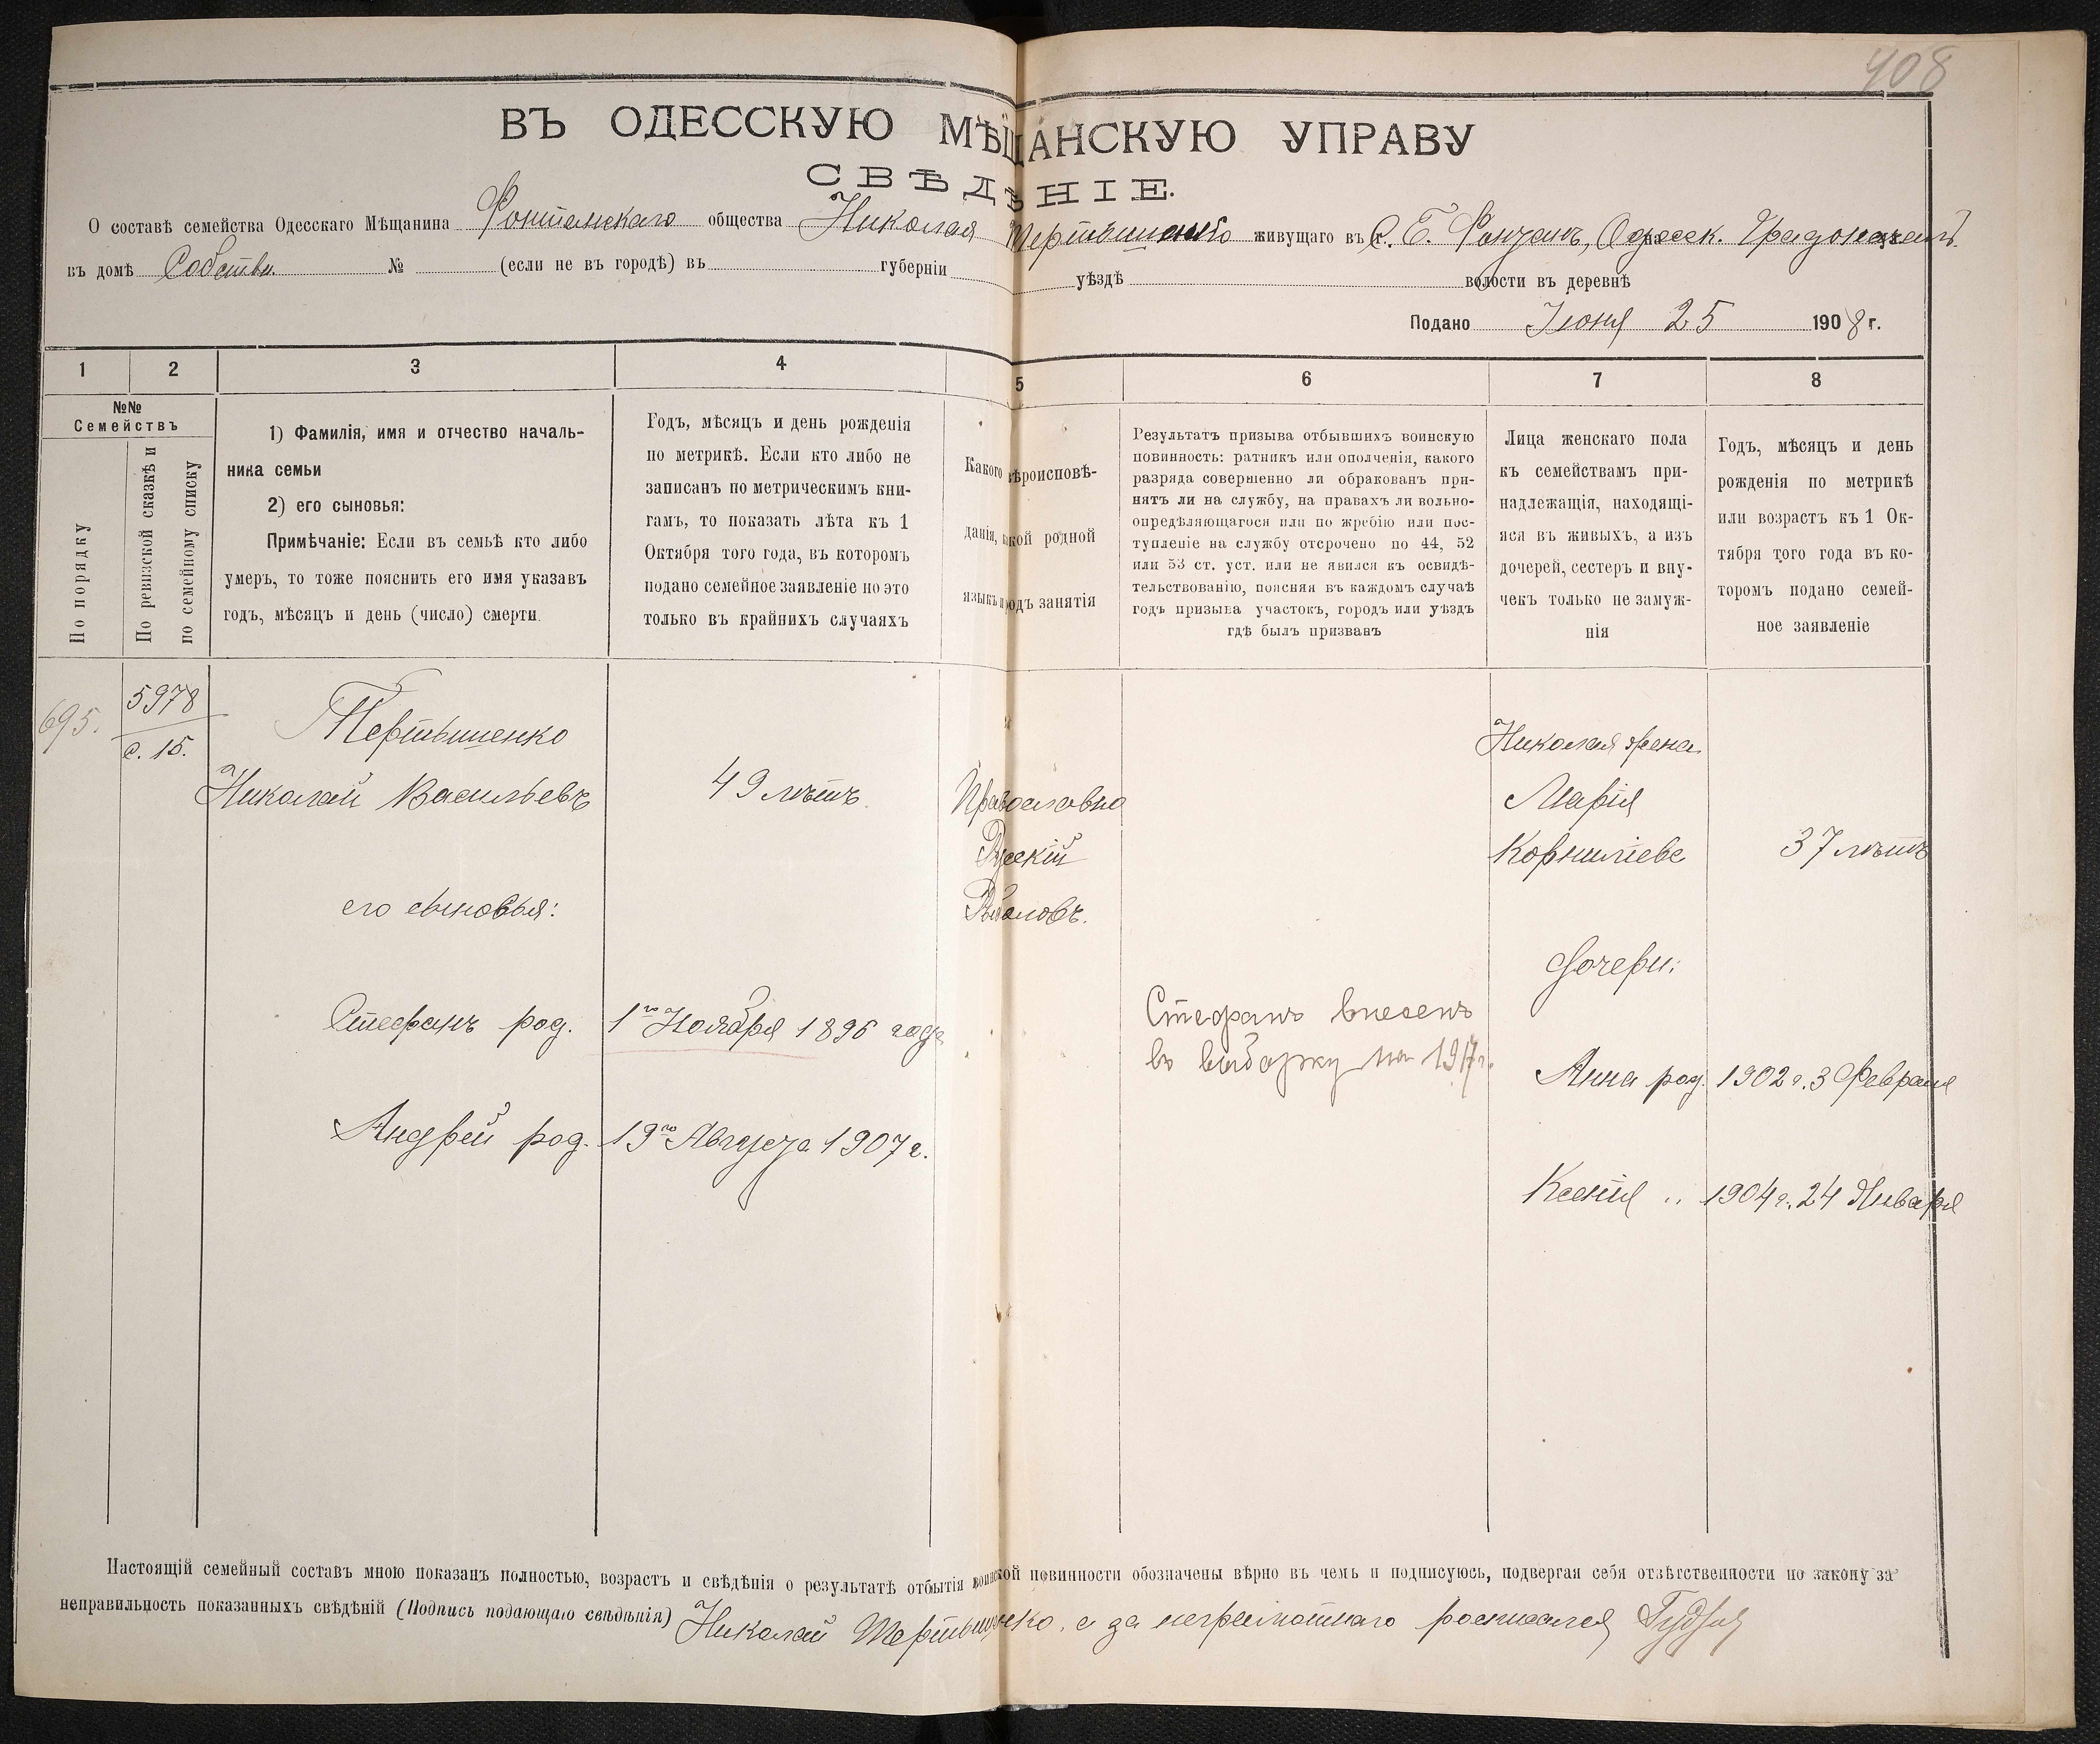 408
ВЪ ОДЕССКУЮ МѢЩАНСКУЮ УПРАВУ
СВѢДѢНІЕ.
О составѣ семейства Одесскаго Мѣщанина Фонтанскаго общества Николая Тертышенко живущаго въ г. С. Б. Фонтанъ, Одесск. Градоначал.
въ домѣ Собствен. № (если не въ городѣ) въ губерніи уѣздѣ волости въ деревнѣ
Подано Іюня 25 1908 г.
1 2 3 4 5 6 7 8
№№
Семействъ
По порядку
По ревизской сказкѣ и
по семейному списку
1) Фамилія, имя и отчество началь-
ника семьи
2) его сыновья:
Примѣчаніе: Если въ семьѣ кто либо
умеръ, то тоже пояснить его имя указавъ
годъ, мѣсяцъ и день (число) смерти.
Годъ, мѣсяцъ и день рожденія
по метрикѣ. Если кто либо не
записанъ по метрическимъ кни-
гамъ, то показать лѣта къ 1
Октября того года, въ которомъ
подано семейное заявленіе но это
только въ крайнихъ случаяхъ
Какого вѣроисповѣ-
данія, какой родной
языкъ и родъ занятія
Результатъ призыва отбывшихъ воинскую
повинность: ратникъ или ополченія, какого
разряда совершенно ли обракованъ при-
нятъ ли на службу, на правахъ ли вольно-
опредѣляющагося или по жребію или пос-
тупленіе на службу отсрочено по 44, 52
или 53 ст. уст. или не явился къ освидѣ-
тельствованію, поясняя въ каждомъ случаѣ
годъ призыва участокъ, городъ или уѣздъ
гдѣ былъ призванъ
Лица женскаго пола
къ семействамъ при-
надлежащія, находящі-
яся въ живыхъ, а изъ
дочерей, сестеръ и вну-
чекъ только не замуж-
нія
Годъ, мѣсяцъ и день
рожденія по метрикѣ
или возрастъ къ 1 Ок-
тября того года въ ко-
торомъ подано семей-
ное заявленіе
695.
5978
с. 15.
Тертышенко
Николай Васильевъ
49 лѣтъ.
Православно
Русскій
Рыболовъ.
Николая жена
Марія
Корниліева
37 лѣтъ
его сыновья:
Дочери:
Стефанъ род. 1го Ноября 1896 года
Стефанъ внесенъ
въ выборку на 1917 г.
Анна род. 1902 г. 3 Февраля
Андрей род. 19го Августа 1907 г.
Ксенія „ 1904 г. 24 Января
Настоящій семейный составъ мною показанъ полностью, возрастъ и свѣдѣнія о результатѣ отбытія воинской повинности обозначены вѣрно въ чемъ и подписуюсь, подвергая себя отвѣтственности по закону за
неправильность показанныхъ свѣдѣній (Подпись подающаго свѣдѣнія) Николай Тертышенко, а за неграмотнаго росписался